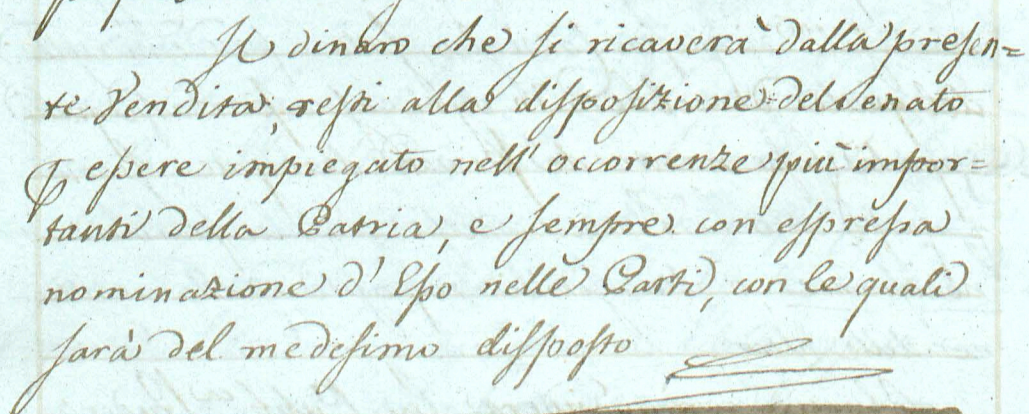 Il dinaro che si ricaverà dalla presen=
te Vendita, resti alla disposizione del Senato
ꝑ essere impiegato nell' occorrenze più impor=
tanti della Patria, e sempre con espressa
nominazione d' Esso nelle Parti, con le quali
sarà del medesimo disposto